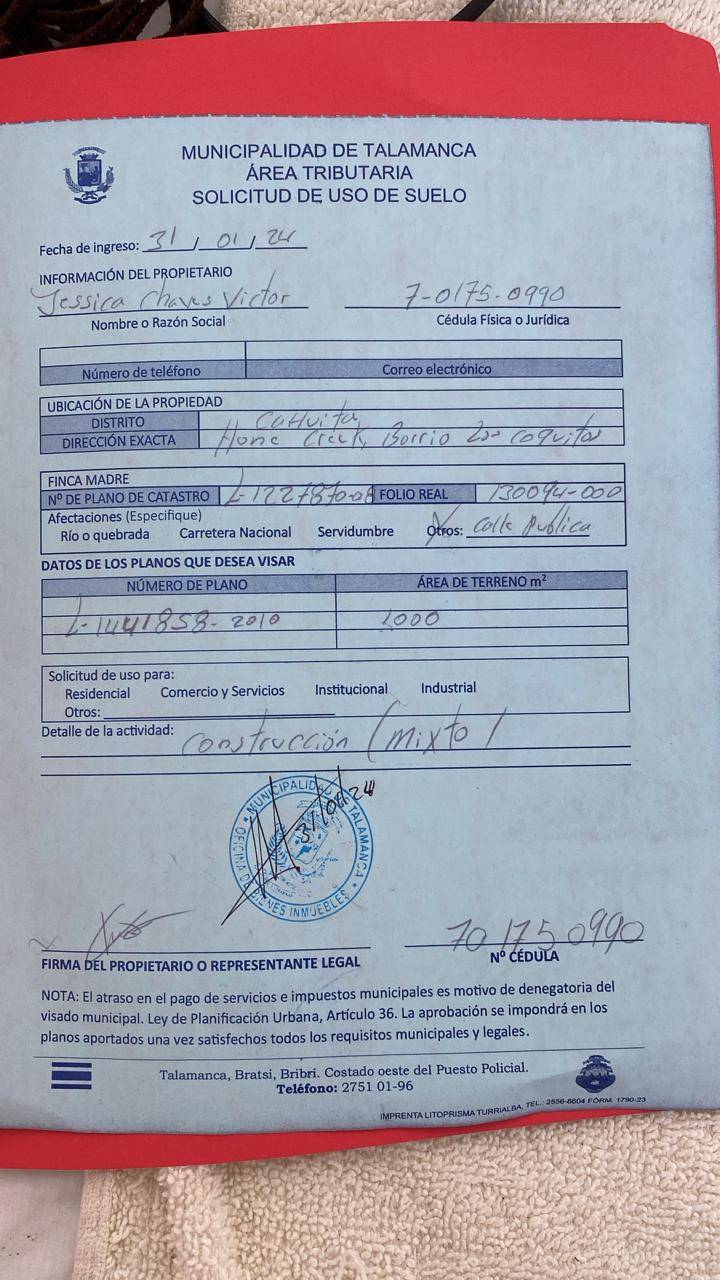 MUNICIPALIDAD DE TALAMANCA
ÁREA TRIBUTARIA
SOLICITUD DE USO DE SUELO
Fecha de ingreso: 31 / 01 / 24
INFORMACIÓN DEL PROPIETARIO
Jessica Chaves Victor 7-0175-0990
Nombre o Razón Social Cédula Física o Jurídica
Número de teléfono Correo electrónico
UBICACIÓN DE LA PROPIEDAD
DISTRITO Cahuita
DIRECCIÓN EXACTA Hone Creek, Barrio Los coquitos
FINCA MADRE
Nº DE PLANO DE CATASTRO L-1227870-08 FOLIO REAL 130094-000
Afectaciones (Especifique)
Río o quebrada Carretera Nacional Servidumbre Otros: Calle Publica
DATOS DE LOS PLANOS QUE DESEA VISAR
NÚMERO DE PLANO ÁREA DE TERRENO m²
L-1441858-2010 1000
Solicitud de uso para:
Residencial Comercio y Servicios Institucional Industrial
Otros:
Detalle de la actividad: Construcción (Mixto)
MUNICIPALIDAD DE TALAMANCA
OFICINA DE BIENES INMUEBLES
31/01/24
701750990
FIRMA DEL PROPIETARIO O REPRESENTANTE LEGAL Nº CÉDULA
NOTA: El atraso en el pago de servicios e impuestos municipales es motivo de denegatoria del
visado municipal. Ley de Planificación Urbana, Artículo 36. La aprobación se impondrá en los
planos aportados una vez satisfechos todos los requisitos municipales y legales.
Talamanca, Bratsi, Bribri. Costado oeste del Puesto Policial.
Teléfono: 2751 01-96
IMPRENTA LITOPRISMA TURRIALBA, TEL.: 2556-8604 FORM. 1790-23